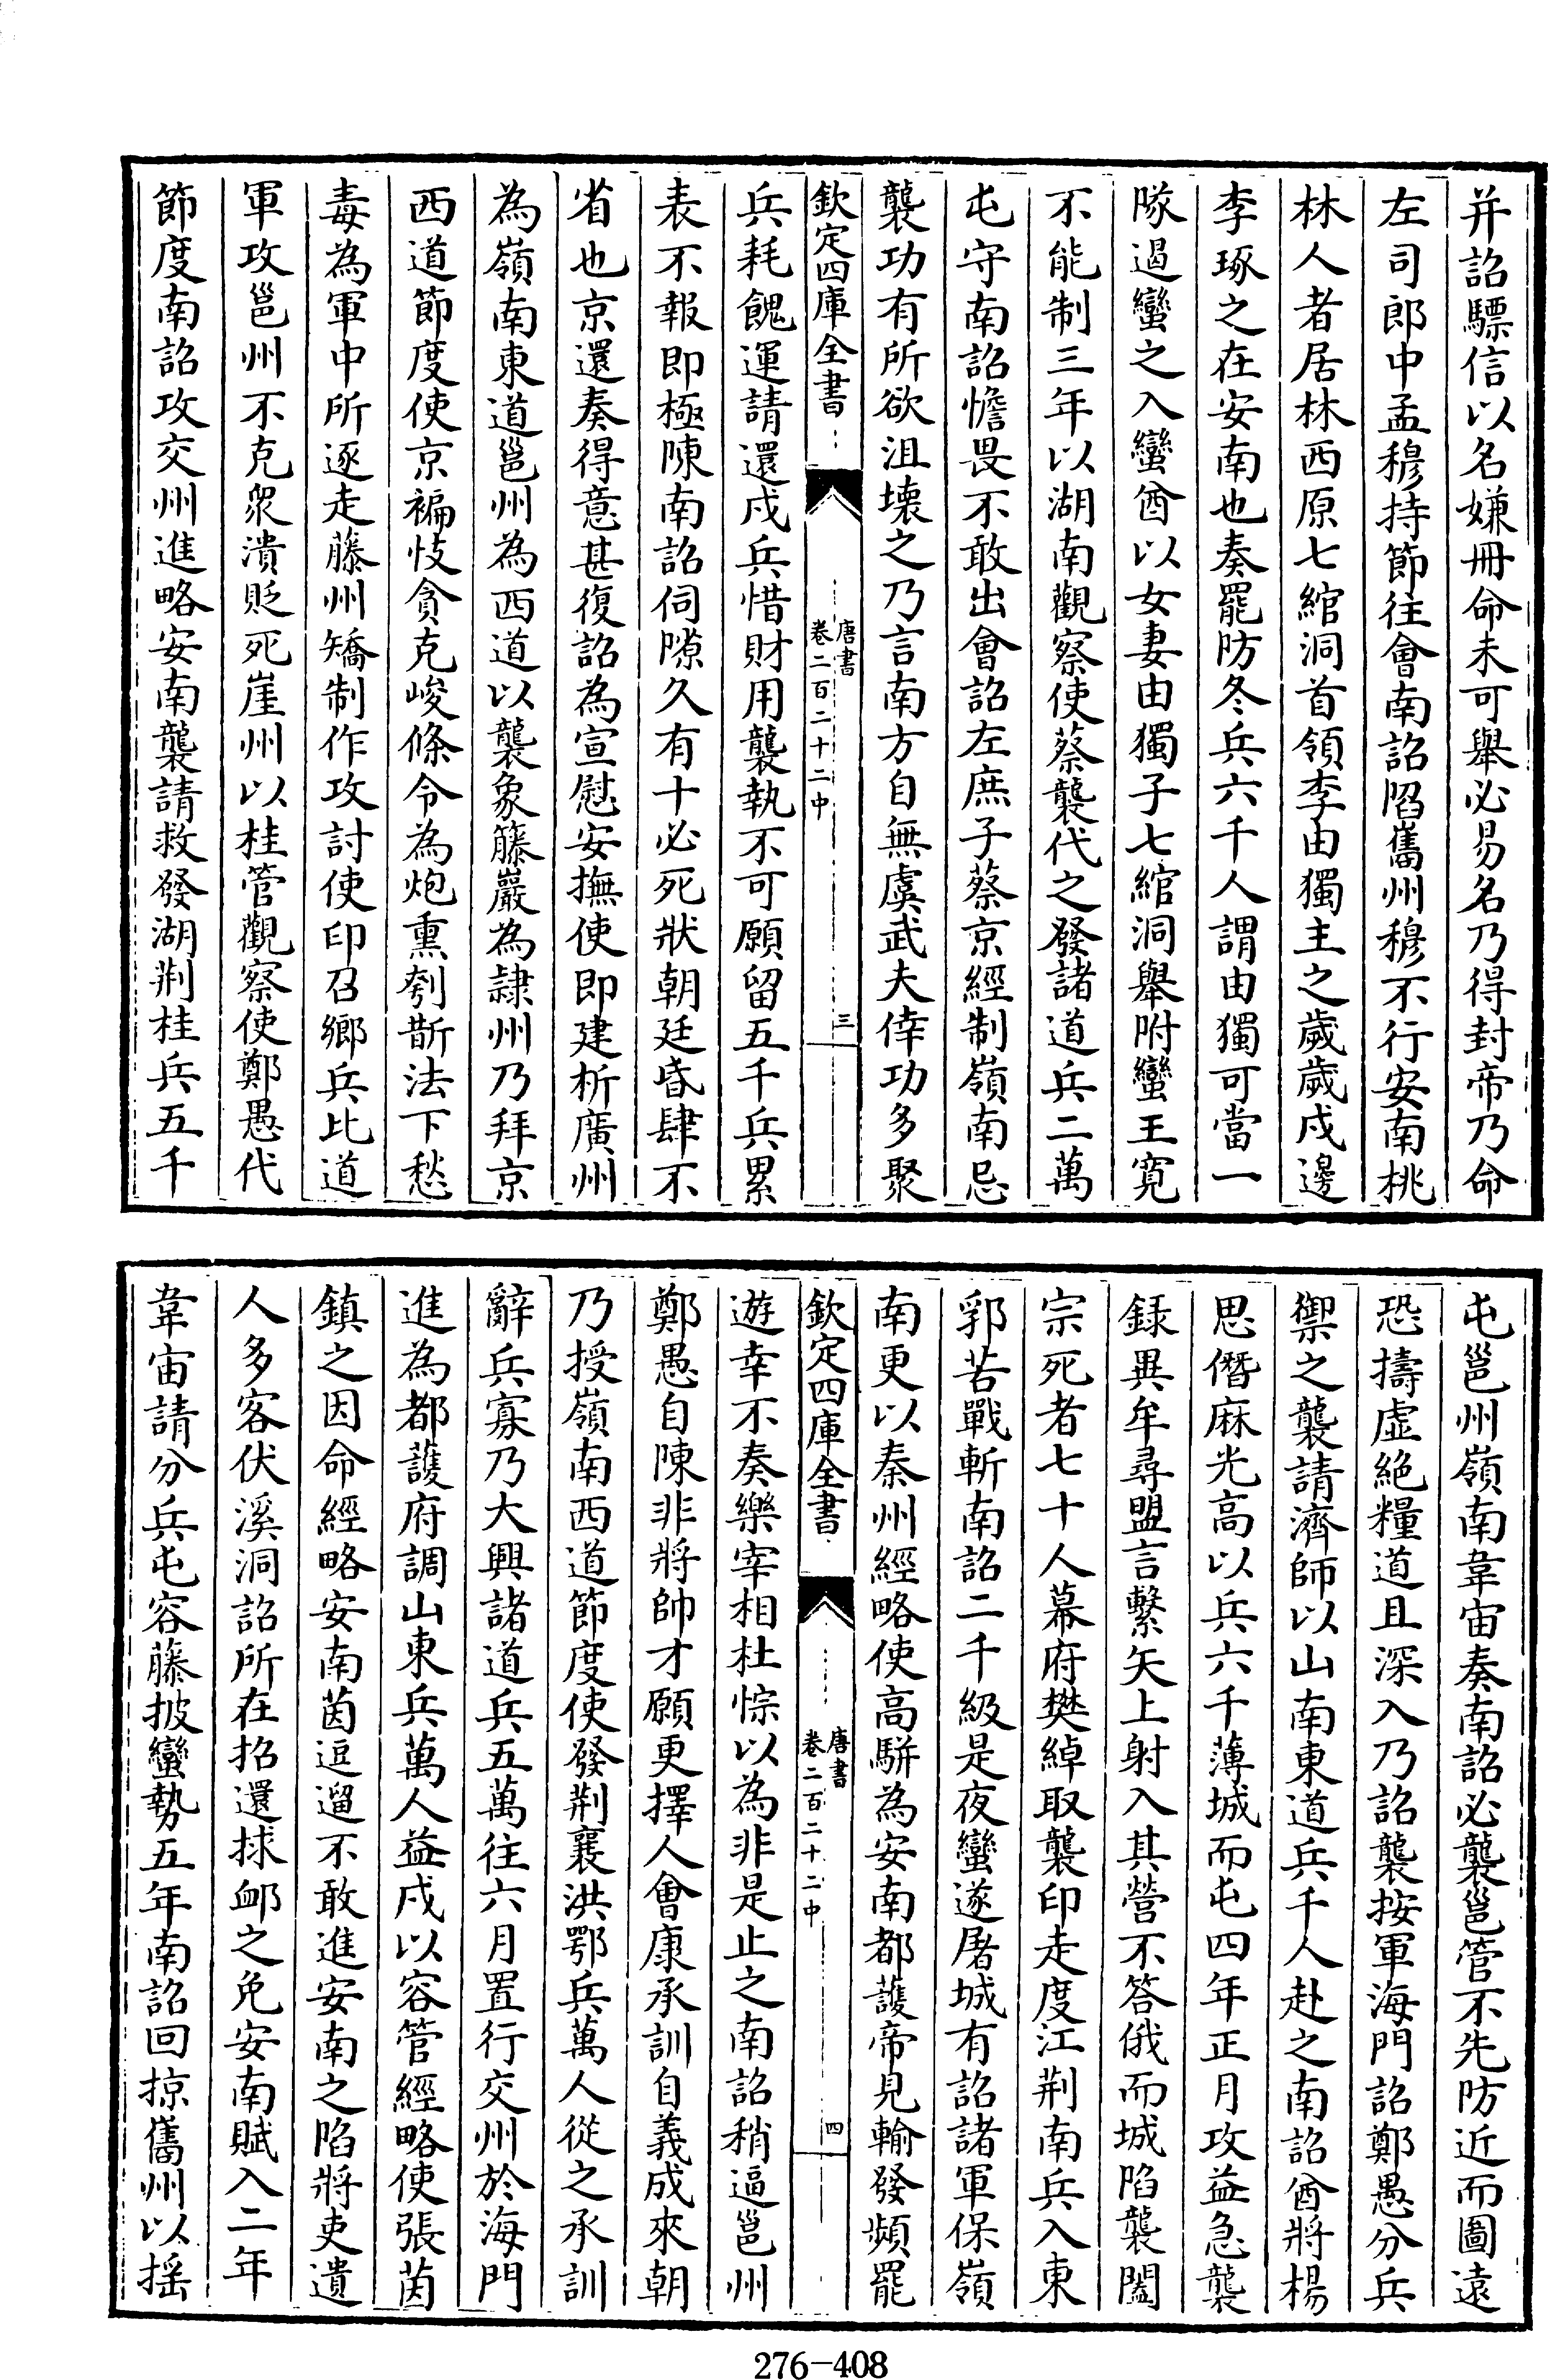 并詔驃信以名嫌冊命未可舉必易名乃得封帝乃命
左司郎中孟穆持節往會南詔陷巂州穆不行安南桃
林人者居林西原七綰洞首領李由獨主之歲歲戍邊
李琢之在安南也奏罷防冬兵六千人謂由獨可當一
隊遏蠻之入蠻酋以女妻由獨子七綰洞舉附蠻王寬
不能制三年以湖南觀察使蔡襲代之發諸道兵二萬
屯守南詔憺畏不敢出會詔左庶子蔡京經制嶺南忌
襲功有所欲沮壊之乃言南方自無虞武夫倖功多聚
欽定四庫全書
唐書
卷二百二十二中
三
兵耗餽運請還戍兵惜財用襲執不可願留五千兵累
表不報即極陳南詔伺隙久有十必死狀朝廷昏肆不
省也京還奏得意甚復詔為宣慰安撫使即建析廣州
為嶺南東道邕州為西道以龔象藤巖為隷州乃拜京
西道節度使京褊忮貪克峻條令為炮熏刳斮法下愁
毒為軍中所逐走藤州矯制作攻討使印召鄉兵比道
軍攻邕州不克衆潰貶死崖州以桂管觀察使鄭愚代
節度南詔攻交州進略安南襲請救發湖荆桂兵五千
屯邕州嶺南韋宙奏南詔必襲邕管不先防近而圖遠
恐擣虛絶糧道且深入乃詔襲按軍海門詔鄭愚分兵
禦之襲請濟師以山南東道兵千人赴之南詔酋將楊
思僭麻光高以兵六千薄城而屯四年正月攻益急襲
録異牟尋盟言繫矢上射入其營不答俄而城陷襲闔
宗死者七十人幕府樊綽取襲印走度江荆南兵入東
郛苦戰斬南詔二千級是夜蠻遂屠城有詔諸軍保嶺
南更以秦州經略使高駢為安南都護帝見輸發頻罷
欽定四庫全書
唐書
卷二百二十二中
四
遊幸不奏樂宰相杜悰以為非是止之南詔稍逼邕州
鄭愚自陳非將帥才願更擇人會康承訓自義成來朝
乃授嶺南西道節度使發荆襄洪鄂兵萬人從之承訓
辭兵寡乃大興諸道兵五萬往六月置行交州於海門
進為都護府調山東兵萬人益戍以容管經略使張茵
鎮之因命經略安南茵逗遛不敢進安南之陷將吏遺
人多客伏溪洞詔所在招還捄卹之免安南賦入二年
韋宙請分兵屯容藤披蠻勢五年南詔回掠巂州以摇
276-408